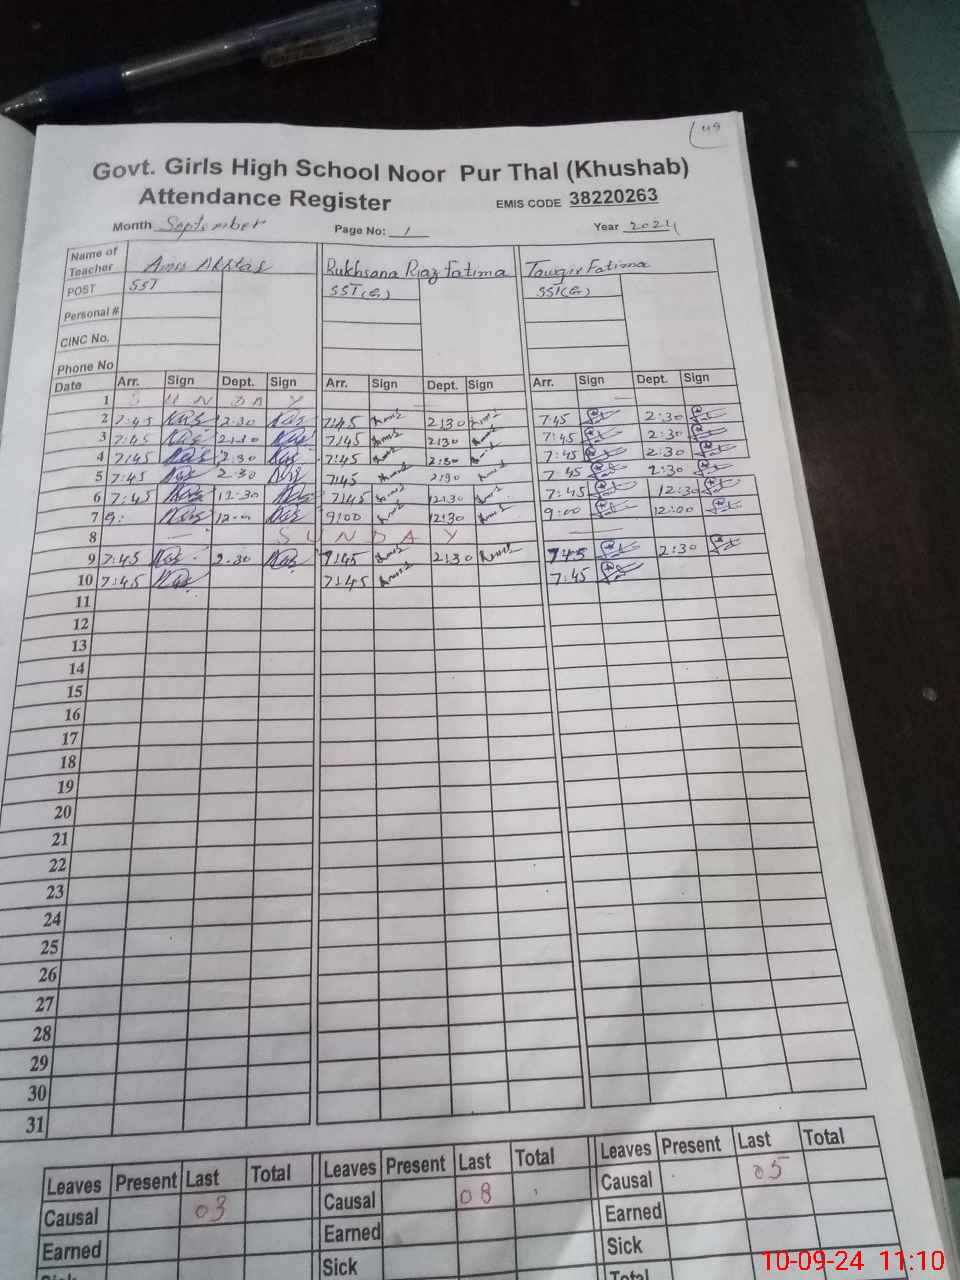 49
Govt. Girls High School Noor Pur Thal (Khushab)
Attendance Register EMIS CODE 38220263
Month September Page No: 1 Year 2024
Name of Teacher Rukhsana Riaz Fatima Touqir Fatima
POST SST SST(G) SST(G)
Personal #
CINC No.
Phone No
Date Arr. Sign Dept. Sign Arr. Sign Dept. Sign Arr. Sign Dept. Sign
1 S U N D A Y
2 7:45 2:30 7:45 2:30 7:45 2:30
3 7:45 2:30 7:45 2:30 7:45 2:30
4 7:45 2:30 7:45 2:30 7:45 2:30
5 7:45 2:30 7:45 2:30 7:45 2:30
6 7:45 12:30 7:45 12:30 7:45 12:30
7 9: 12- 9:00 12:30 9:00 12:00
8 S U N D A Y
9 7:45 2:30 7:45 2:30 7:45 2:30
10 7:45 7:45 7:45
11
12
13
14
15
16
17
18
19
20
21
22
23
24
25
26
27
28
29
30
31
Leaves Present Last Total Leaves Present Last Total Leaves Present Last Total
Causal 03 Causal 08 Causal 05
Earned Earned Earned
Sick Sick
Total
10-09-24 11:10